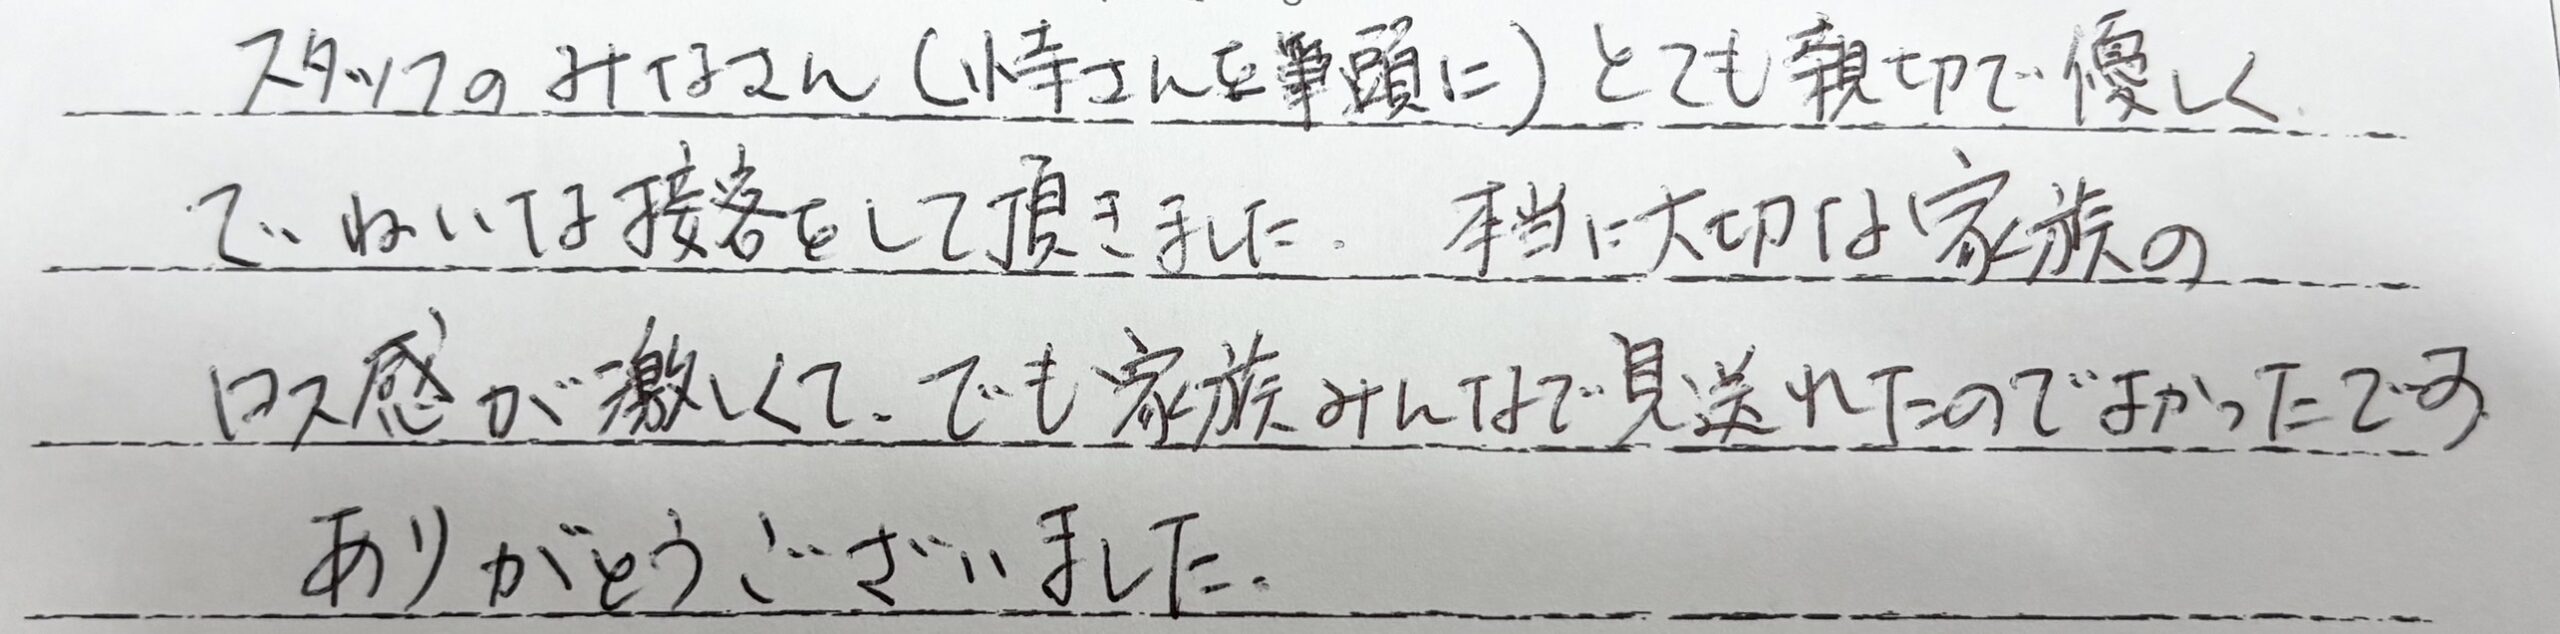 スタッフのみなさん(小幸さんを筆頭に)とても親切で優しく
ていねいな接客をして頂きました. 本当に大切な家族の
ロス感が激しくて、でも家族みんなで見送れたのでよかったです
ありがとうございました.